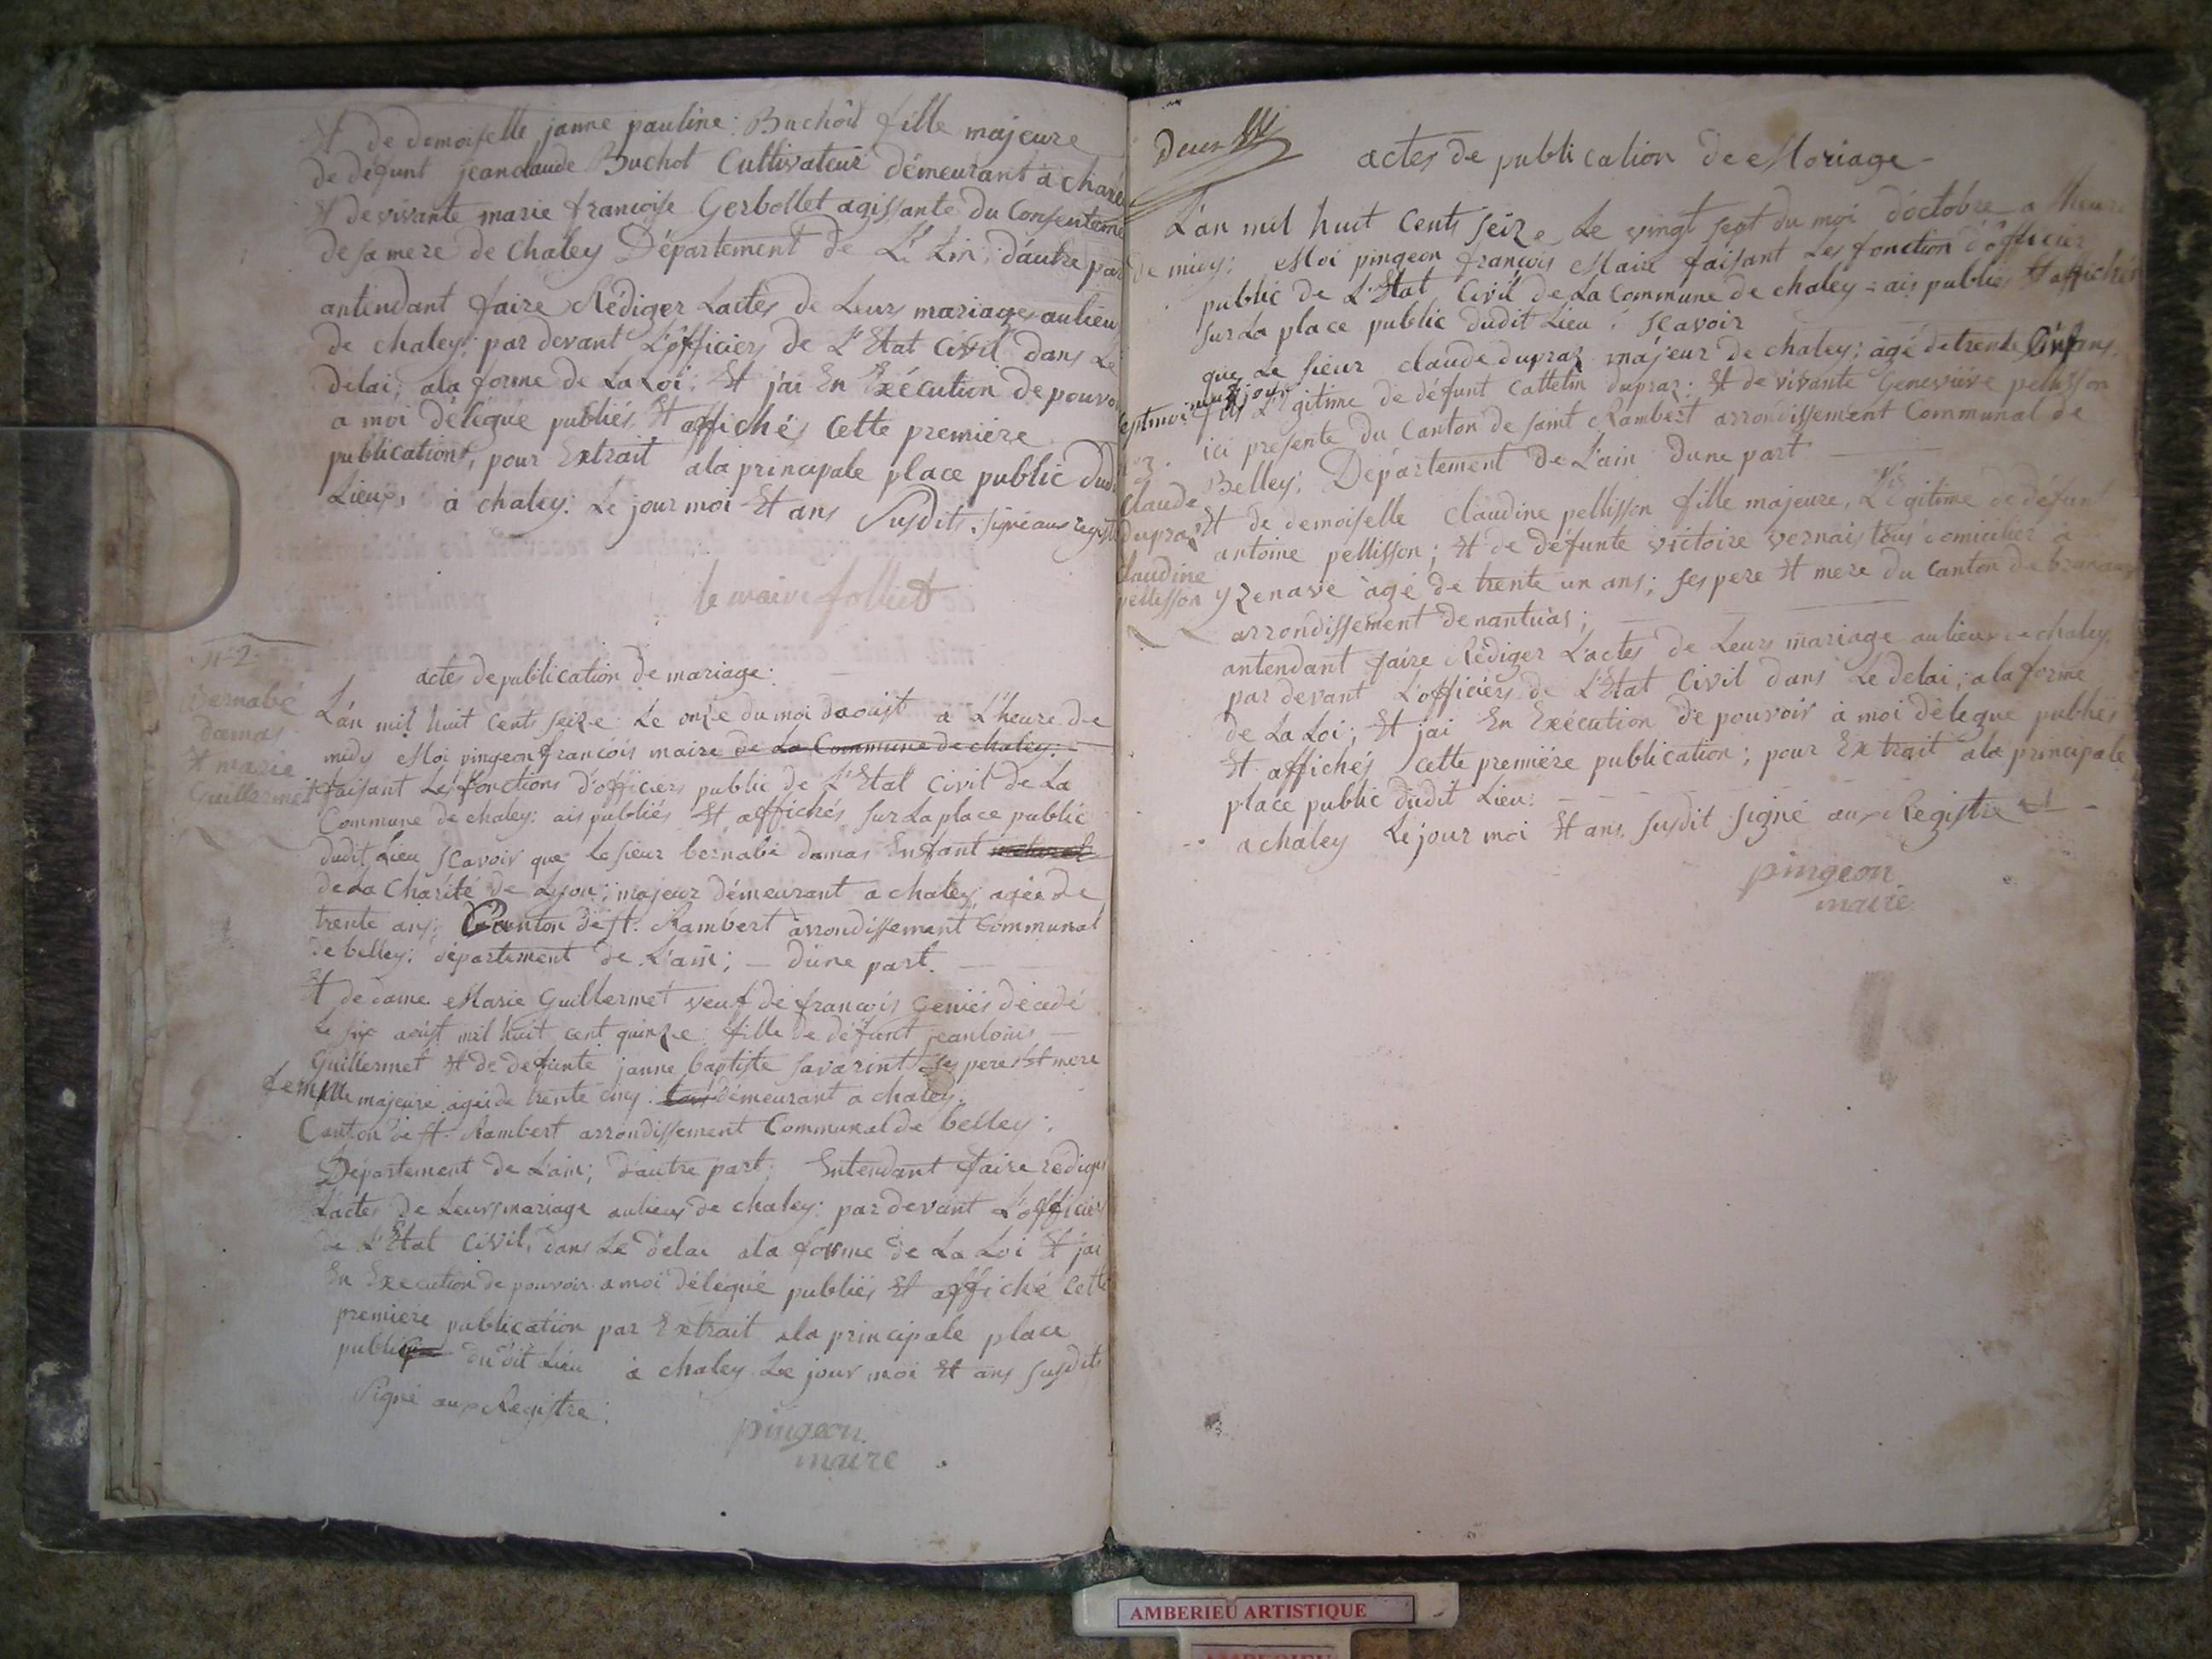 Et de demoiselle janne pauline: Buchod fille majeure
de défunt jeanclaude Buchot Cultivateur démeurant a chaley
Et de vivante marie francoise Gerbollet agissante du Consenteme
de sa mere de Chaley Département de L'Ain; dautre par
antendant faire Rédiger Lactes de Leurs mariages aulieu
de chaley; par devant L'officiers de L'Etat Civil dans Le
delai; ala forme de La Loi; Et j'ai En Exécution de pouvoi
a moi délégué publiés, Et affichés Cette premiere
publications, pour Extrait ala principale place public dud
Lieux, à chaley: Le jour moi Et ans Susdits. signé aux regist
le maire folliet
n=2=
actes de publication de mariage:
Bernabé
damas
Et marie
Guillermet
L'an mil huit Cents Seize Le onze du moi daoust a L'heure de
midy Moi pingeon françois maire de La Commune de chaley:
faisant Les fonctions d'officiers public de L'Etat Civil de La
Commune de chaley: ais publiés Et affichés Sur La place public
dudit Lieu Scavoir que Le sieur bernabé damas Enfant
de La Charité de Lyon; majeur démeurant a chaley; agée de
trente ans; Canton de St. Rambert arrondissement Communal
de belley: département de L'ain; — dune part.
Et de dame Marie Guillermet veuf de francois Geniés décedé
Le six aoust mil huit cent quinze: fille de défunt jeanlouis —
Guillermet Et de defunte janne baptiste Savarint Ses pere Et mere
femelle majeure agée de trente cinq: démeurant a chaley.
Canton de St. Rambert arrondissement Communal de belley;
Département de L'ain; dautre part; Entendant faire rédiger
Lactes de Leurs mariage aulieux de chaley: par devant L'officier
de L'Etat Civil, dans Le délai ala forme de La Loi Et jai
En Execution de pouvoir a moi délégué publiés Et affiché Cette
premiere publication par Extrait ala principale place
public du dit Lieu à chaley Le jour moi Et ans Susdits
Signé aux Registre;
pingeon
maire
Deux
actes de publication de Mariage -
L'an mil huit Cents Seize Le vingt sept du moi d'octobre a Lheure
de midy; Moi pingeon françois Maire faisant Les fonction d'officier
public de L'Etat Civil de La Commune de chaley = ais publies Et affichés
Sur La place public dudit Lieu; Scavoir
que Le Sieur claude dupraz majeur de chaley; agé de trente Cinq ans
Septmoi neuf jour fils L'Egitime de défunt Cattelin dupraz: Et de vivante Genevieve pellisson
ici presente du Canton de Saint Rambert arrondissement Communal de
n 3.
Belley; Département de L'ain Dune part —
Claude
dupraz
Claudine
pellisson
Et de demoiselle Claudine pellisson fille majeure, L'Egitime de défunt
antoine pellisson; Et de défunte victoire vernais tous domicilier à
yzenave agé de trente un ans; ses pere Et mere du Canton de
arrondissement de nantuas;
antendant faire Rédiger L'actes de Leurs mariage au lieux de chaley
par devant L'officiers de L'Etat Civil dans Le delai; ala forme
de La Loi; Et jai En Exécution de pouvoir à moi délegué publiés
Et affichés cette premiére publication; pour Extrait ala principale
place public dudit Lieu:
a chaley Le jour moi Et ans Susdit Signé aux Registre
pingeon
maire
AMBERIEU ARTISTIQUE
AMBERIEU